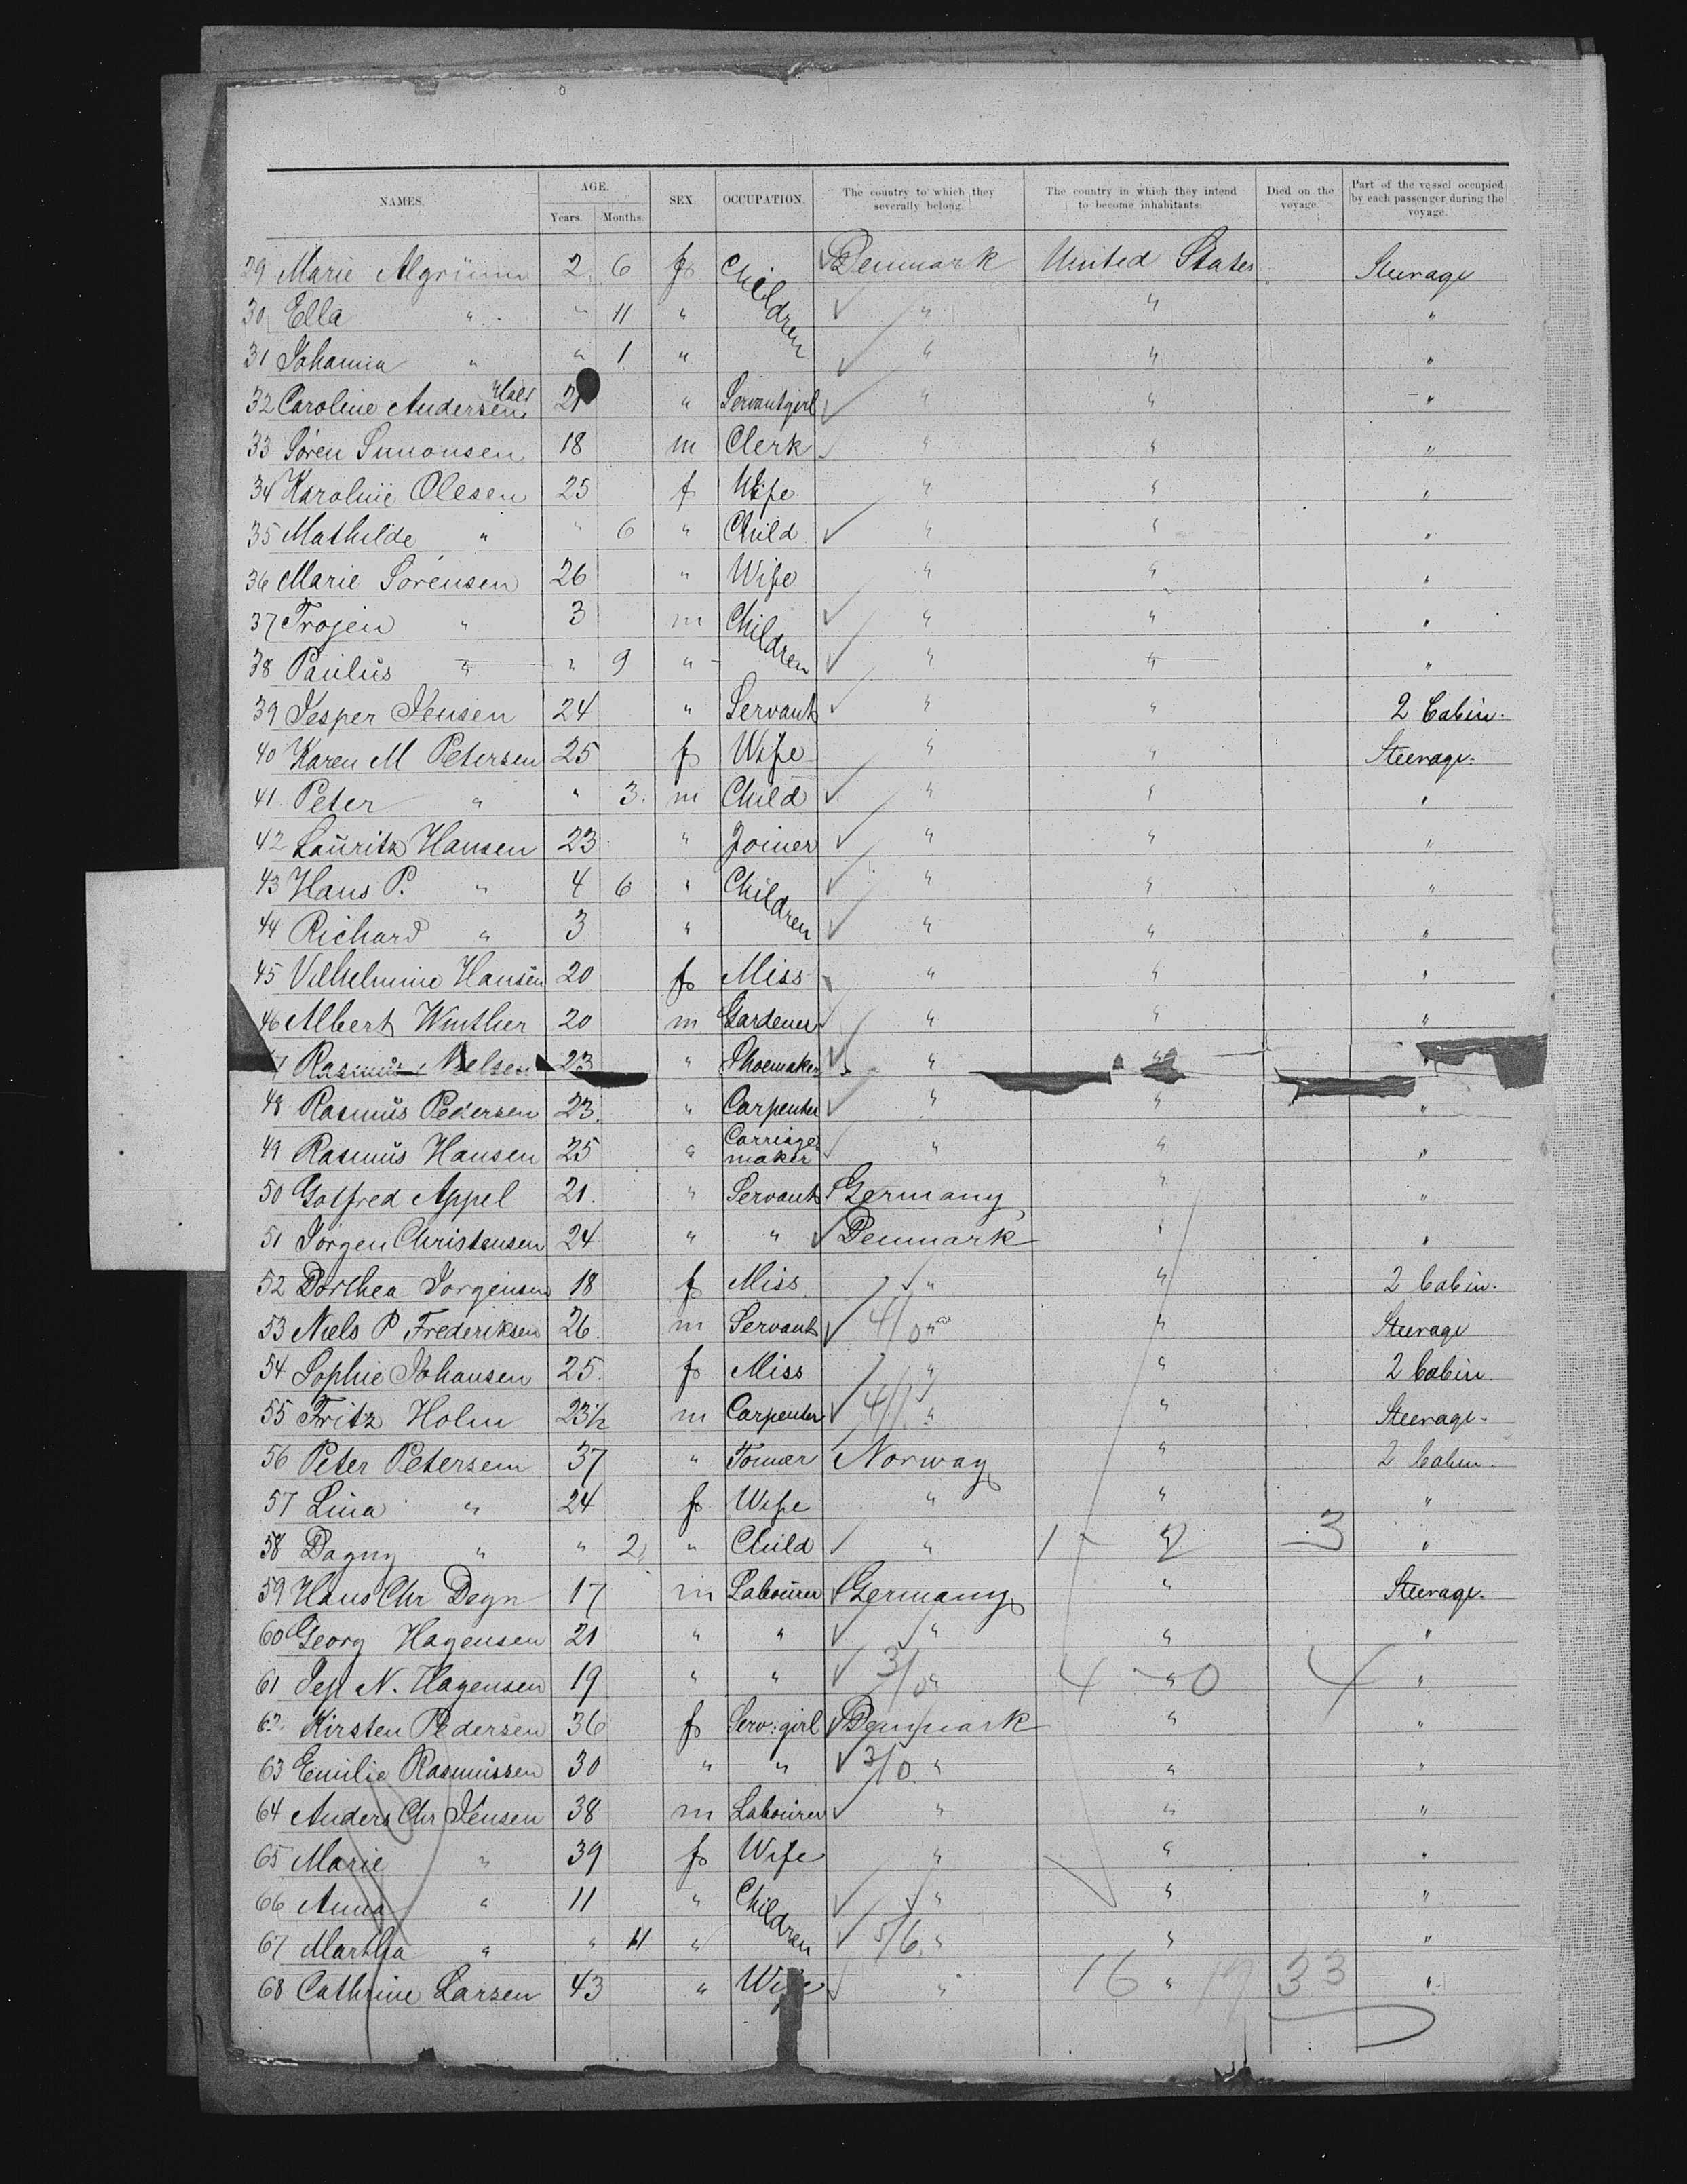 NAMES. AGE. SEX. OCCUPATION. The country to which they severally belong. The country in which they intend to become inhabitants. Died on the voyage. Part of the vessel occupied by each passenger during the voyage.
Years. Months.
29 Marie Algrünn 2 6 f Children Denmark United States Steerage
30 Ella " " 11 " " " "
31 Johanna " " 1 " " " "
32 Caroline Andersen 21 " Servantgirl " " "
33 Sören Simonsen 18 m Clerk " " "
34 Karoline Olesen 25 f Wife " " "
35 Mathilde " " 6 " Child " " "
36 Marie Sorensen 26 " Wife " " "
37 Trojen " 3 m Children " " "
38 Paulus " " 9 " " " "
39 Jesper Jensen 24 " Servant " " 2 Cabin.
40 Karen M Petersen 25 f Wife " " Steerage.
41. Peter " " 3. m Child " " "
42 Lauritz Hansen 23 " Joiner " " "
43 Hans P. " 4 6 " Children " " "
44 Richard " 3 " " " "
45 Vilhelmine Hansen 20 f Miss " " "
46 Albert Winther 20 m Gardener " " "
47 Rasmus Nielsen 23 " Shoemaker " " "
48 Rasmus Pedersen 23. " Carpenter " " "
49 Rasmus Hansen 25 " Carriage-maker " " "
50 Gotfred Appel 21. " Servant Germany " "
51 Jörgen Christensen 24 " " Denmark " "
52 Dorthea Jorgensen 18 f Miss " " 2 Cabin.
53 Niels P Frederiksen 26. m Servant 4/0 " " Steerage
54 Sophie Johansen 25. f Miss " " 2 Cabin
55 Fritz Holm 23½ m Carpenter 4/1 " " Steerage.
56 Peter Petersen 37 " Norway " 2 Cabin.
57 Lina " 24 f Wife " " "
58 Dagny " " 2 " Child " 1 - 2 3 "
59 Hans Chr Degn 17 m Labourer Germany " Steerage.
60 Georg Hagensen 21 " " " " "
61 Jep N. Hagensen 19 " " 3/0 " 4 - 0 4 "
62. Kirsten Pedersen 36 f Serv: girl Denmark " "
63 Emilie Rasmussen 30 " " 3/0 " " "
64 Anders Chr Jensen 38 m Labourer " " "
65 Marie " 39 f Wife " " "
66 Anna " 11 " Children " " "
67 Martha " " 11 " 5/6 " " "
68 Cathrine Larsen 43 " Wife " 16 " 17 33 "